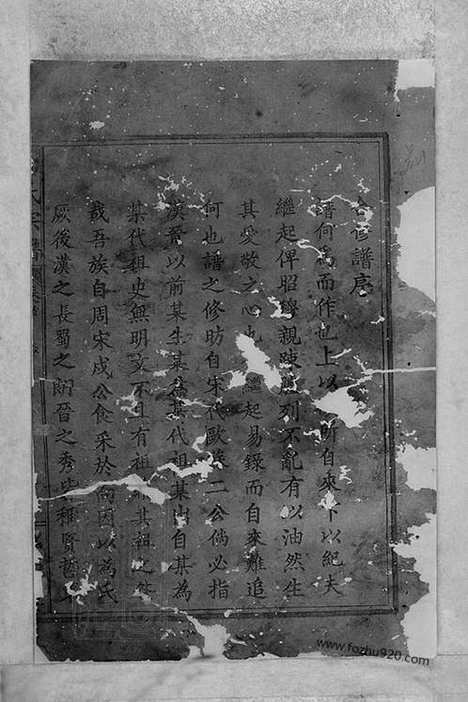 修譜序
譜何為而作也上以 所自來下以紀夫
繼起俾昭穆親疎 列不亂有以油然生
其愛敬之心也 繼起易錄而自來難追
何也譜之修昉自宋代歐 二公倘必指
漢晉以前某生某為某代祖某出自某為
某代祖史無明文不且有祖 其祖之
哉吾族自周宋戍公食采於向因以為氏
厥後漢之長蜀之朗晉之秀皆稱賢
氏宗譜
www.fozhu920.com